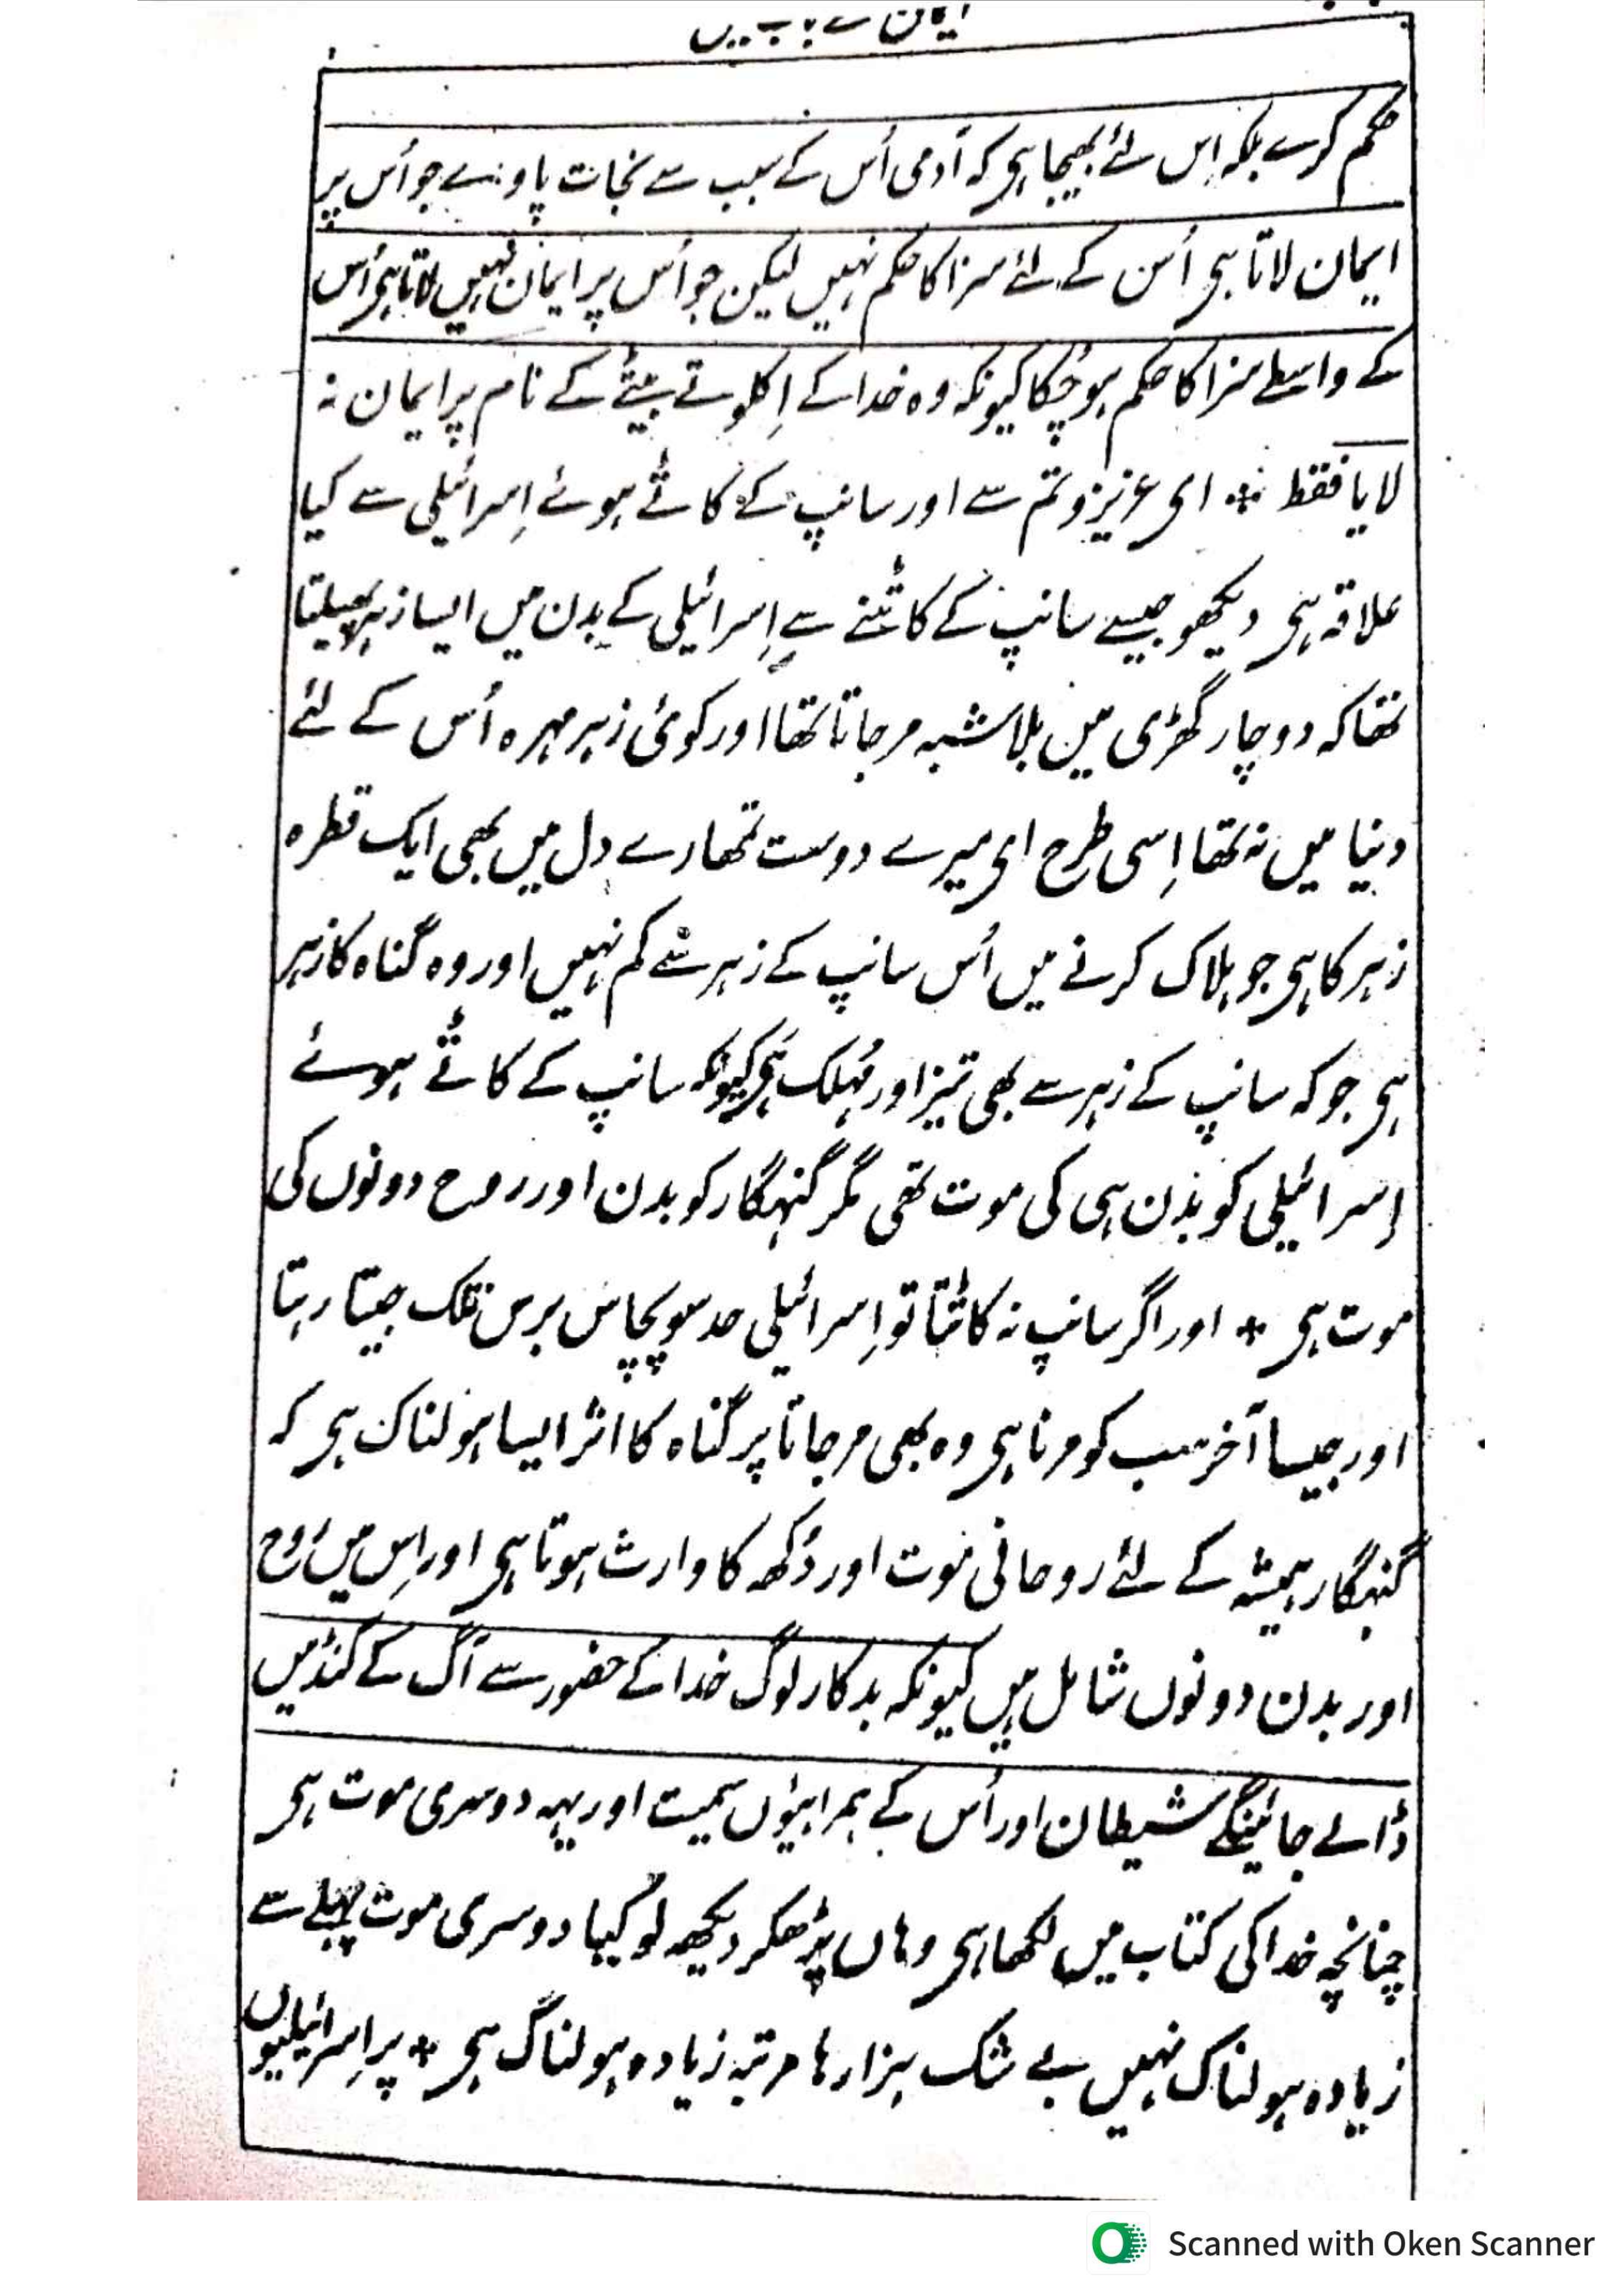 ایمان کے باب میں
حکم کرے بلکہ اِس لئے بھیجا ہی کہ آدمی اُس کے سبب سے نجات پاوے جو اُس پر
ایمان لاتا ہی اُس کے لئے سزا کا حکم نہیں لیکن جو اُس پر ایمان نہیں لاتا ہی اُس
کے واسطے سزا کا حکم ہو چُکا کیونکہ وہ خدا کے اِکلوتے بیٹے کے نام پر ایمان نہ
لایا فقط * ای عزیزو تم سے اور سانپ کے کاٹے ہوئے اِسرائیلی سے کیا
علاقہ ہی دیکھو جیسے سانپ کے کاٹنے سے اِسرائیلی کے بدن میں ایسا زہر پھیلتا
تھا کہ دو چار گھڑی میں بلاشبہ مر جاتا تھا اور کوئی زہر مہرہ اُس کے لئے
دنیا میں نہ تھا اِسی طرح ای میرے دوست تمھارے دل میں بھی ایک قطرہ
زہر کا ہی جو ہلاک کرنے میں اُس سانپ کے زہر سے کم نہیں اور وہ گناہ کا زہر
ہی جو کہ سانپ کے زہر سے بھی تیز اور مُہلک ہی کیونکہ سانپ کے کاٹے ہوئے
اِسرائیلی کو بدن ہی کی موت تھی مگر گنہگار کو بدن اور روح دونوں کی
موت ہی * اور اگر سانپ نہ کاٹتا تو اِسرائیلی حد سو پچاس برس تلک جیتا رہتا
اور جیسا آخر سب کو مرنا ہی وہ بھی مر جاتا پر گناہ کا اثر ایسا ہولناک ہی کہ
گنہگار ہمیشہ کے لئے روحانی موت اور دُکھ کا وارث ہوتا ہی اور اِس میں رُوح
اور بدن دونوں شامل ہیں کیونکہ بدکار لوگ خدا کے حضور سے آگ کے کُنڈ میں
ڈالے جائینگے شیطان اور اُس کے ہمراہیوں سمیت اور یہہ دوسری موت ہی
چنانچہ خدا کی کتاب میں لکھا ہی وہاں پڑھکر دیکھہ لو کیا دوسری موت پہلے سے
زیادہ ہولناک نہیں بے شک ہزارہا مرتبہ زیادہ ہولناگ ہی * پر اِسرائیلیوں
Scanned with Oken Scanner